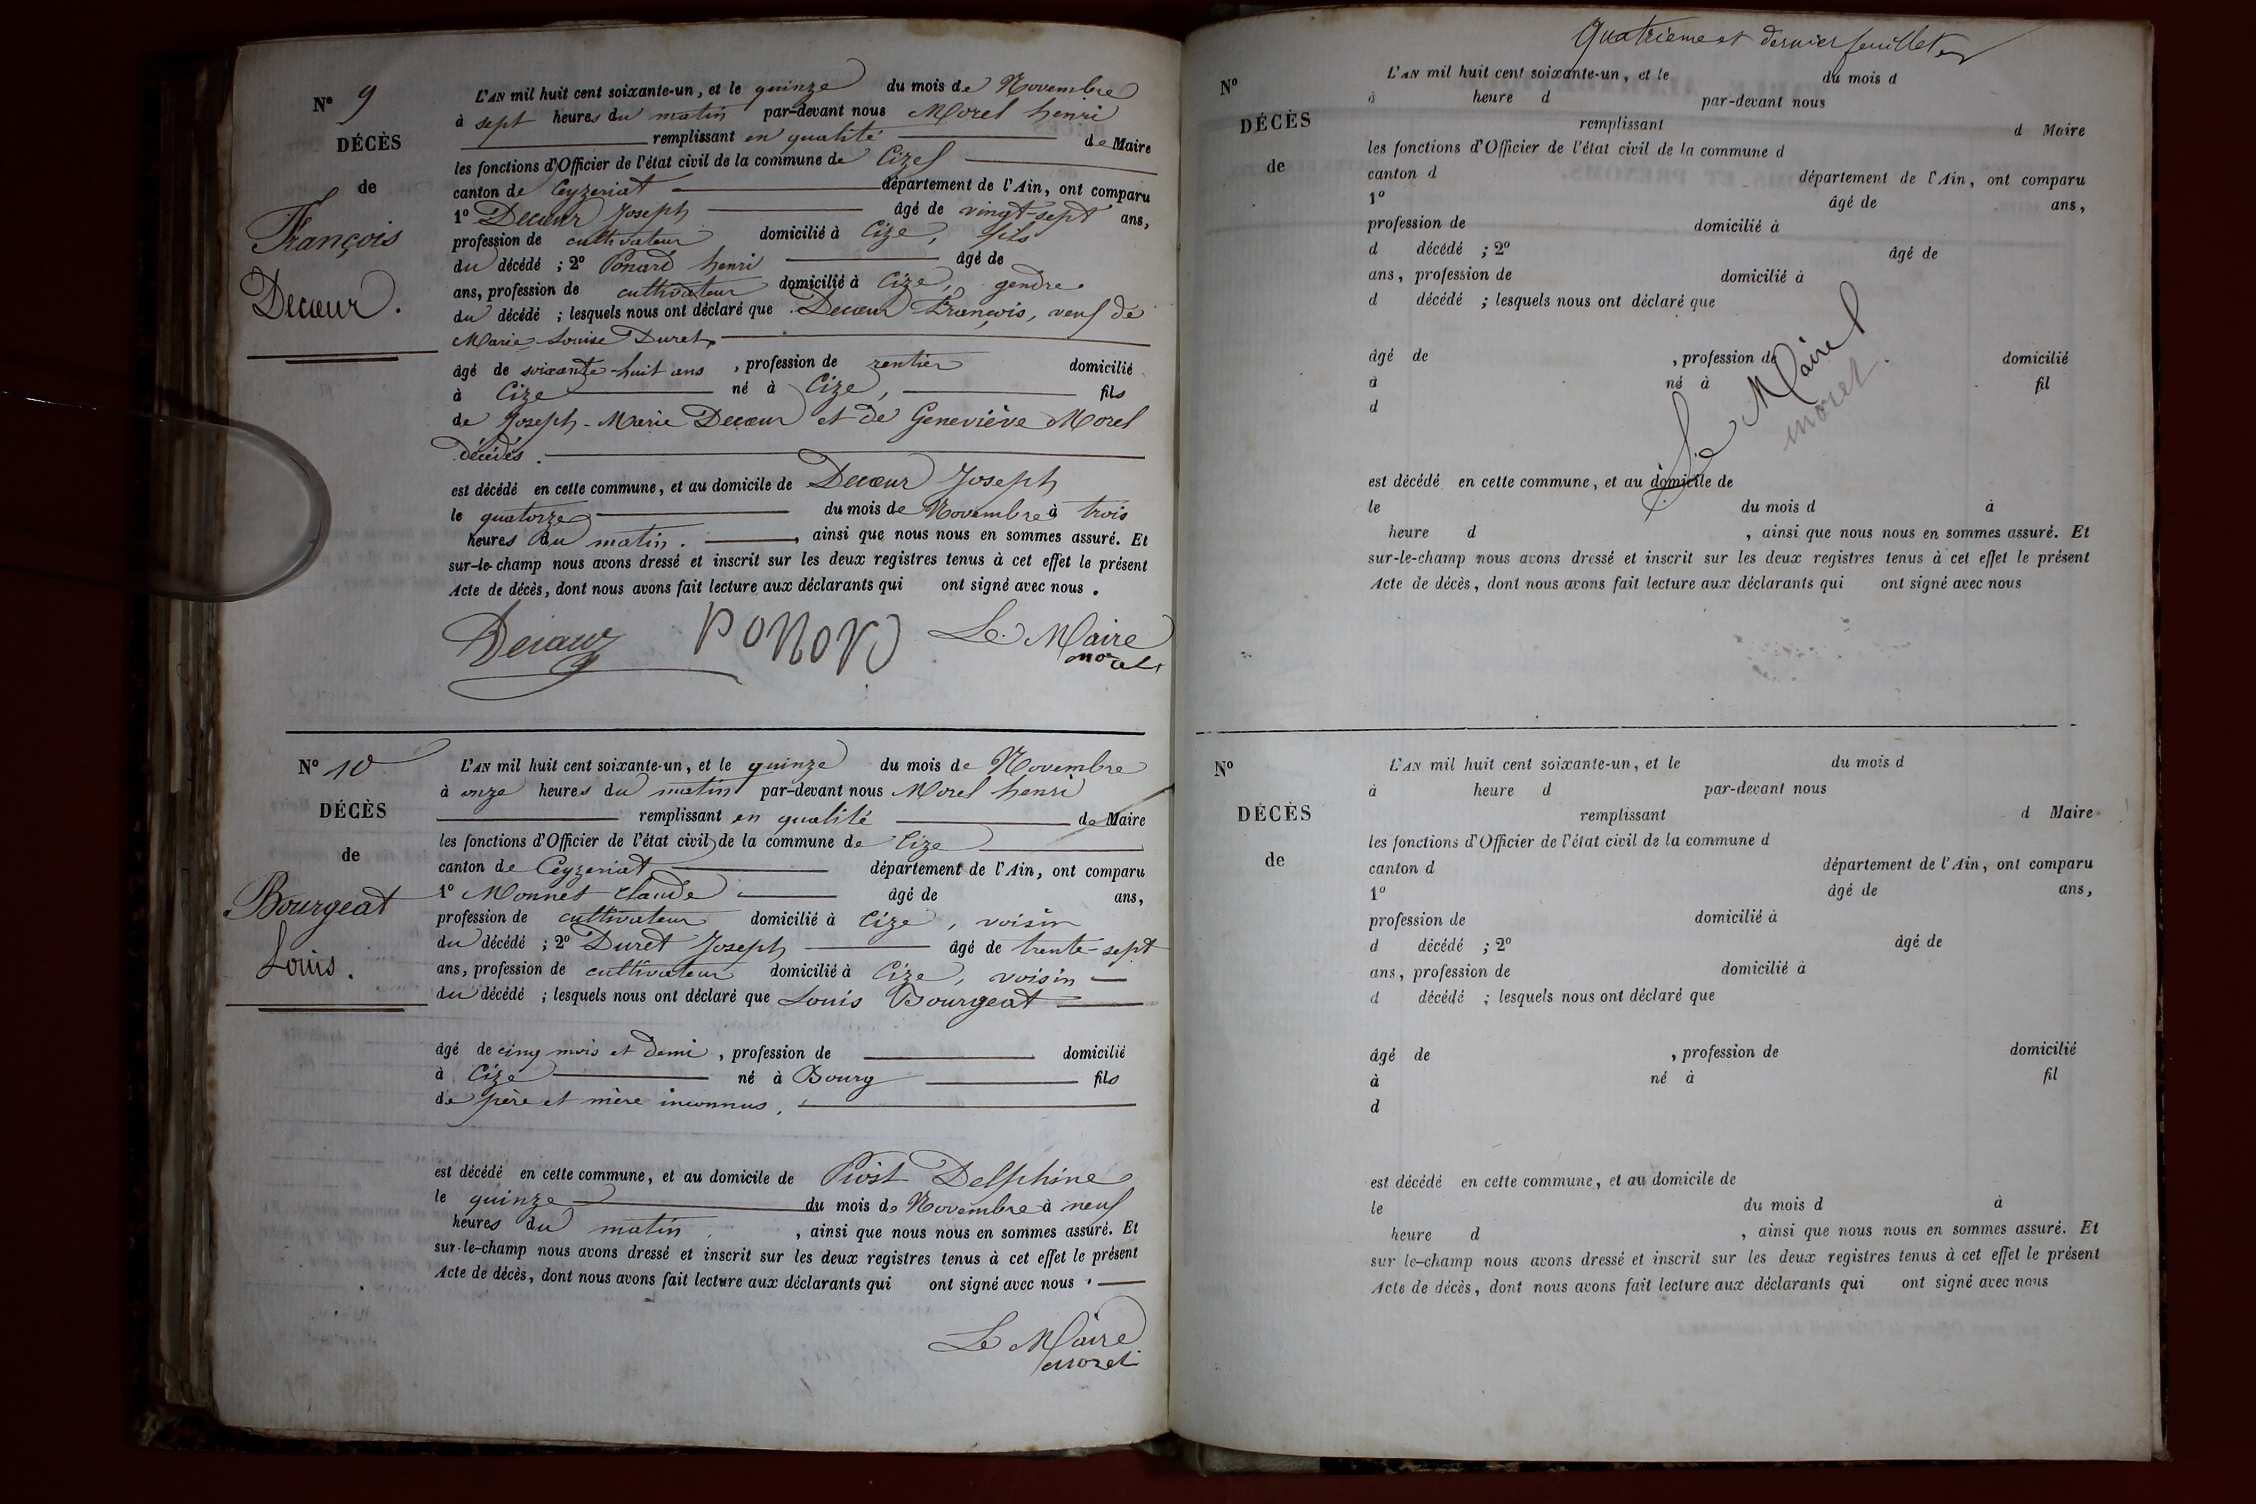 N° 9
DÉCÈS
de
François
Decœur.
L'AN mil huit cent soixante-un, et le quinze du mois de Novembre
à sept heures du matin par-devant nous Morel henri
remplissant en qualité de Maire
les fonctions d'Officier de l'état civil de la commune de Cize
canton de Ceyzeriat département de l'Ain, ont comparu
1° Decœur Joseph âgé de vingt-sept ans,
profession de cultivateur domicilié à Cize, fils
du décédé ; 2° Ponard henri âgé de
ans, profession de cultivateur domicilié à Cize, gendre
du décédé ; lesquels nous ont déclaré que Decœur François, veuf de
Marie-Louise Duret,
âgé de soixante-huit ans , profession de rentier domicilié
à Cize né à Cize, fils
de Joseph-Marie Decœur et de Geneviève Morel
décédés.
est décédé en cette commune, et au domicile de Decœur Joseph
le quatorze du mois de Novembre à trois
heures du matin. , ainsi que nous nous en sommes assuré. Et
sur-le-champ nous avons dressé et inscrit sur les deux registres tenus à cet effet le présent
Acte de décès, dont nous avons fait lecture aux déclarants qui ont signé avec nous.
Decœur PONARD Le Maire
morel
N° 10
DÉCÈS
de
Bourgeat
Louis.
L'AN mil huit cent soixante-un, et le quinze du mois de Novembre
à onze heures du matin par-devant nous Morel henri
remplissant en qualité de Maire
les fonctions d'Officier de l'état civil de la commune de Cize
canton de Ceyzeriat département de l'Ain, ont comparu
1° Monnet Claude âgé de ans,
profession de cultivateur domicilié à Cize, voisin
du décédé ; 2° Duret Joseph âgé de trente-sept
ans, profession de cultivateur domicilié à Cize, voisin
du décédé ; lesquels nous ont déclaré que Louis Bourgeat
âgé de cinq mois et demi , profession de domicilié
à Cize né à Bourg fils
de père et mère inconnus.
est décédé en cette commune, et au domicile de Piost Delphine
le quinze du mois de Novembre à neuf
heures du matin. , ainsi que nous nous en sommes assuré. Et
sur-le-champ nous avons dressé et inscrit sur les deux registres tenus à cet effet le présent
Acte de décès, dont nous avons fait lecture aux déclarants qui ont signé avec nous.
Le Maire
morel
Quatrième et dernier feuillet
N°
DÉCÈS
de
L'AN mil huit cent soixante-un, et le du mois d
à heure d par-devant nous
remplissant d Maire
les fonctions d'Officier de l'état civil de la commune d
canton d département de l'Ain, ont comparu
1° âgé de ans,
profession de domicilié à
d décédé ; 2° âgé de
ans, profession de domicilié à
d décédé ; lesquels nous ont déclaré que
âgé de , profession de domicilié
à né à fil
d
Le Maire
morel.
est décédé en cette commune, et au domicile de
le du mois d à
heure d , ainsi que nous nous en sommes assuré. Et
sur-le-champ nous avons dressé et inscrit sur les deux registres tenus à cet effet le présent
Acte de décès, dont nous avons fait lecture aux déclarants qui ont signé avec nous
N°
DÉCÈS
de
L'AN mil huit cent soixante-un, et le du mois d
à heure d par-devant nous
remplissant d Maire
les fonctions d'Officier de l'état civil de la commune d
canton d département de l'Ain, ont comparu
1° âgé de ans,
profession de domicilié à
d décédé ; 2° âgé de
ans, profession de domicilié à
d décédé ; lesquels nous ont déclaré que
âgé de , profession de domicilié
à né à fil
d
est décédé en cette commune, et au domicile de
le du mois d à
heure d , ainsi que nous nous en sommes assuré. Et
sur le-champ nous avons dressé et inscrit sur les deux registres tenus à cet effet le présent
Acte de décès, dont nous avons fait lecture aux déclarants qui ont signé avec nous